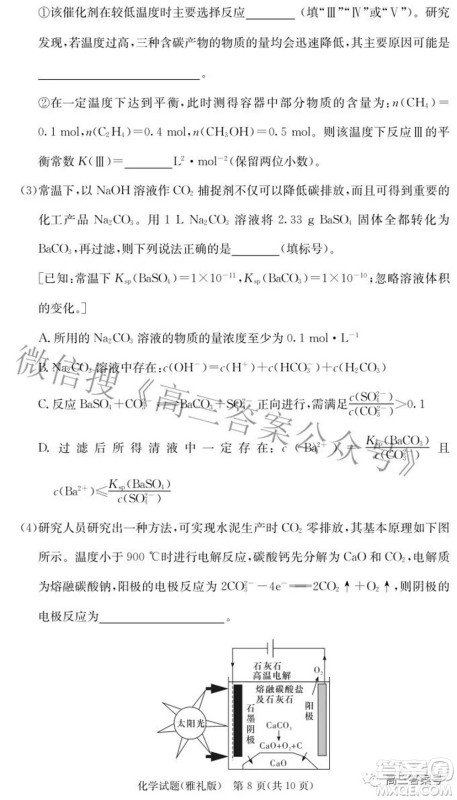 ①该催化剂在较低温度时主要选择反应______(填“Ⅲ”“Ⅳ”或“Ⅴ”)。研究
发现,若温度过高,三种含碳产物的物质的量均会迅速降低,其主要原因可能是
____________________。
②在一定温度下达到平衡,此时测得容器中部分物质的含量为:n(CH₄)=
0.1 mol,n(C₂H₄)=0.4 mol,n(CH₃OH)=0.5 mol。则该温度下反应Ⅲ的平
衡常数 K(Ⅲ)=______L²·mol⁻²(保留两位小数)。
(3)常温下,以 NaOH 溶液作 CO₂ 捕捉剂不仅可以降低碳排放,而且可得到重要的
化工产品 Na₂CO₃。用 1 L Na₂CO₃ 溶液将 2.33 g BaSO₄ 固体全都转化为
BaCO₃,再过滤,则下列说法正确的是______(填标号)。
[已知:常温下 Ksp(BaSO₄)=1×10⁻¹¹,Ksp(BaCO₃)=1×10⁻¹⁰;忽略溶液体积
的变化。]
A. 所用的 Na₂CO₃ 溶液的物质的量浓度至少为 0.1 mol·L⁻¹
B. Na₂CO₃ 溶液中存在:c(OH⁻)=c(H⁺)+c(HCO₃⁻)+c(H₂CO₃)
C. 反应 BaSO₄+CO₃²⁻ BaCO₃+SO₄²⁻ 正向进行,需满足 c(SO₄²⁻)/c(CO₃²⁻)>0.1
D. 过滤后所得清液中一定存在:c(Ba²⁺)=Ksp(BaCO₃)/c(CO₃²⁻) 且
c(Ba²⁺)≤Ksp(BaSO₄)/c(SO₄²⁻)
(4)研究人员研究出一种方法,可实现水泥生产时 CO₂ 零排放,其基本原理如下图
所示。温度小于 900 ℃时进行电解反应,碳酸钙先分解为 CaO 和 CO₂,电解质
为熔融碳酸钠,阳极的电极反应为 2CO₃²⁻−4e⁻══2CO₂↑+O₂↑,则阴极的
电极反应为______________。
石灰石
高温电解
O₂
熔融碳酸盐
及石灰石
太阳光
石墨阴极
阳极
CaCO₃
CaO+O₂+C
CaO
化学试题(雅礼版) 第 8 页(共 10 页)
微信搜《高三答案公众号》
高三答案号